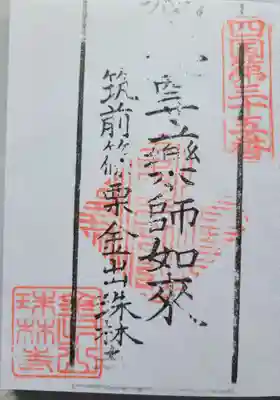 四国第三十五番
薬師如來
筑前篠栗金出珠林寺
珠林寺